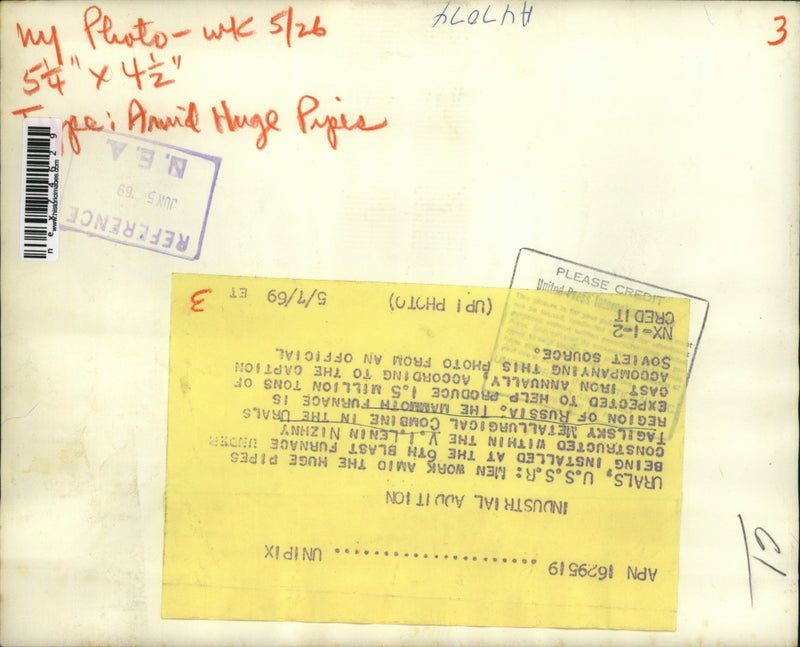 ny Photo - wk 5/26
5¼" x 4½"
Type: Amid Huge Pipes
A47074
3
nex14629
www.historicimages.com
N.E.A.
JUN 5 '69
REFERENCE
PLEASE CREDIT
United Press
APN 1629519 ........................ UNIPIX
INDUSTRIAL ADDITION
URALS, U.S.S.R: MEN WORK AMID THE HUGE PIPES
BEING INSTALLED AT THE 6TH BLAST FURNACE UNDER
CONSTRUCTED WITHIN THE V.I.LENIN NIZHNY
TAGILSKY METALLURGICAL COMBINE IN THE URALS
REGION OF RUSSIA. THE MAMMOTH FURNACE IS
EXPECTED TO HELP PRODUCE 1.5 MILLION TONS OF
CAST IRON ANNUALLY, ACCORDING TO THE CAPTION
ACCOMPANYING THIS PHOTO FROM AN OFFICIAL
SOVIET SOURCE.
NX-1-2
CREDIT (UPI PHOTO) 5/7/69 ET
3